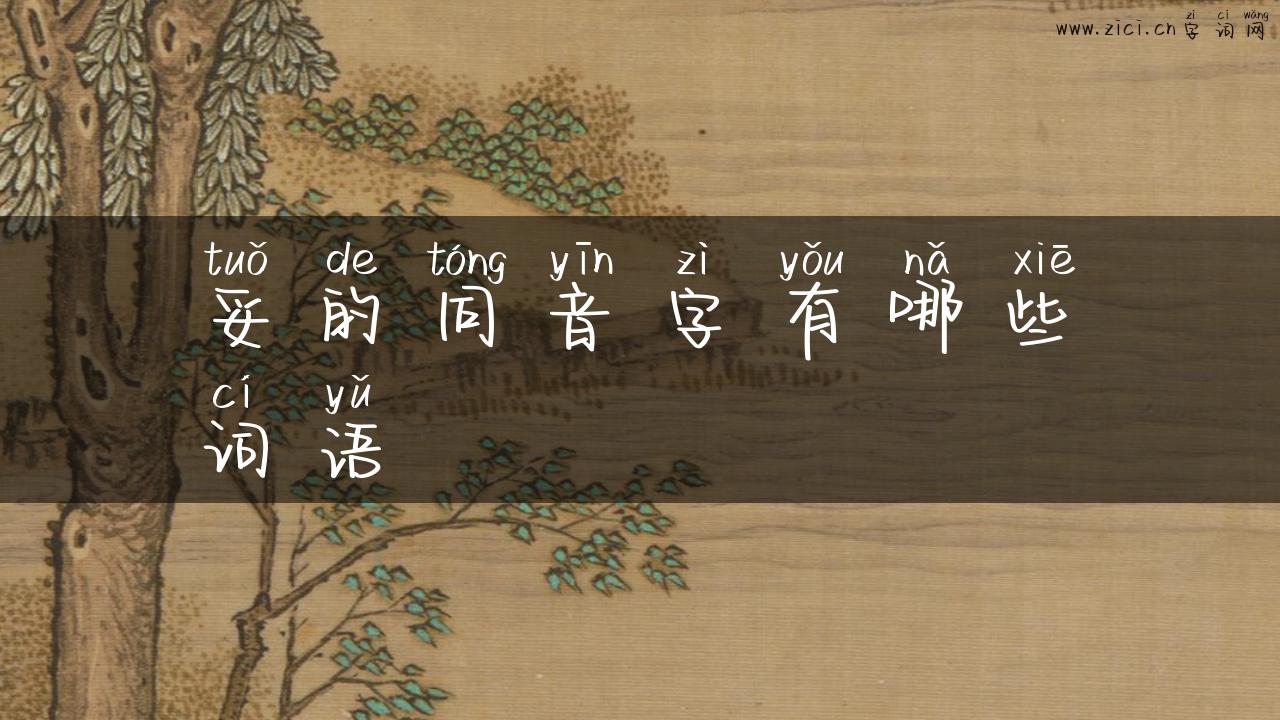 zì cí wǎng
www.zici.cn 字词网
tuǒ de tóng yīn zì yǒu nǎ xiē
妥的同音字有哪些
cí yǔ
词语